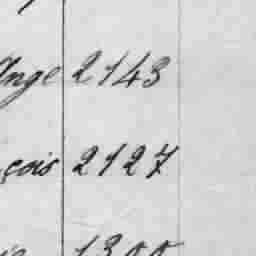 Ange 2143
çois 2127
1300